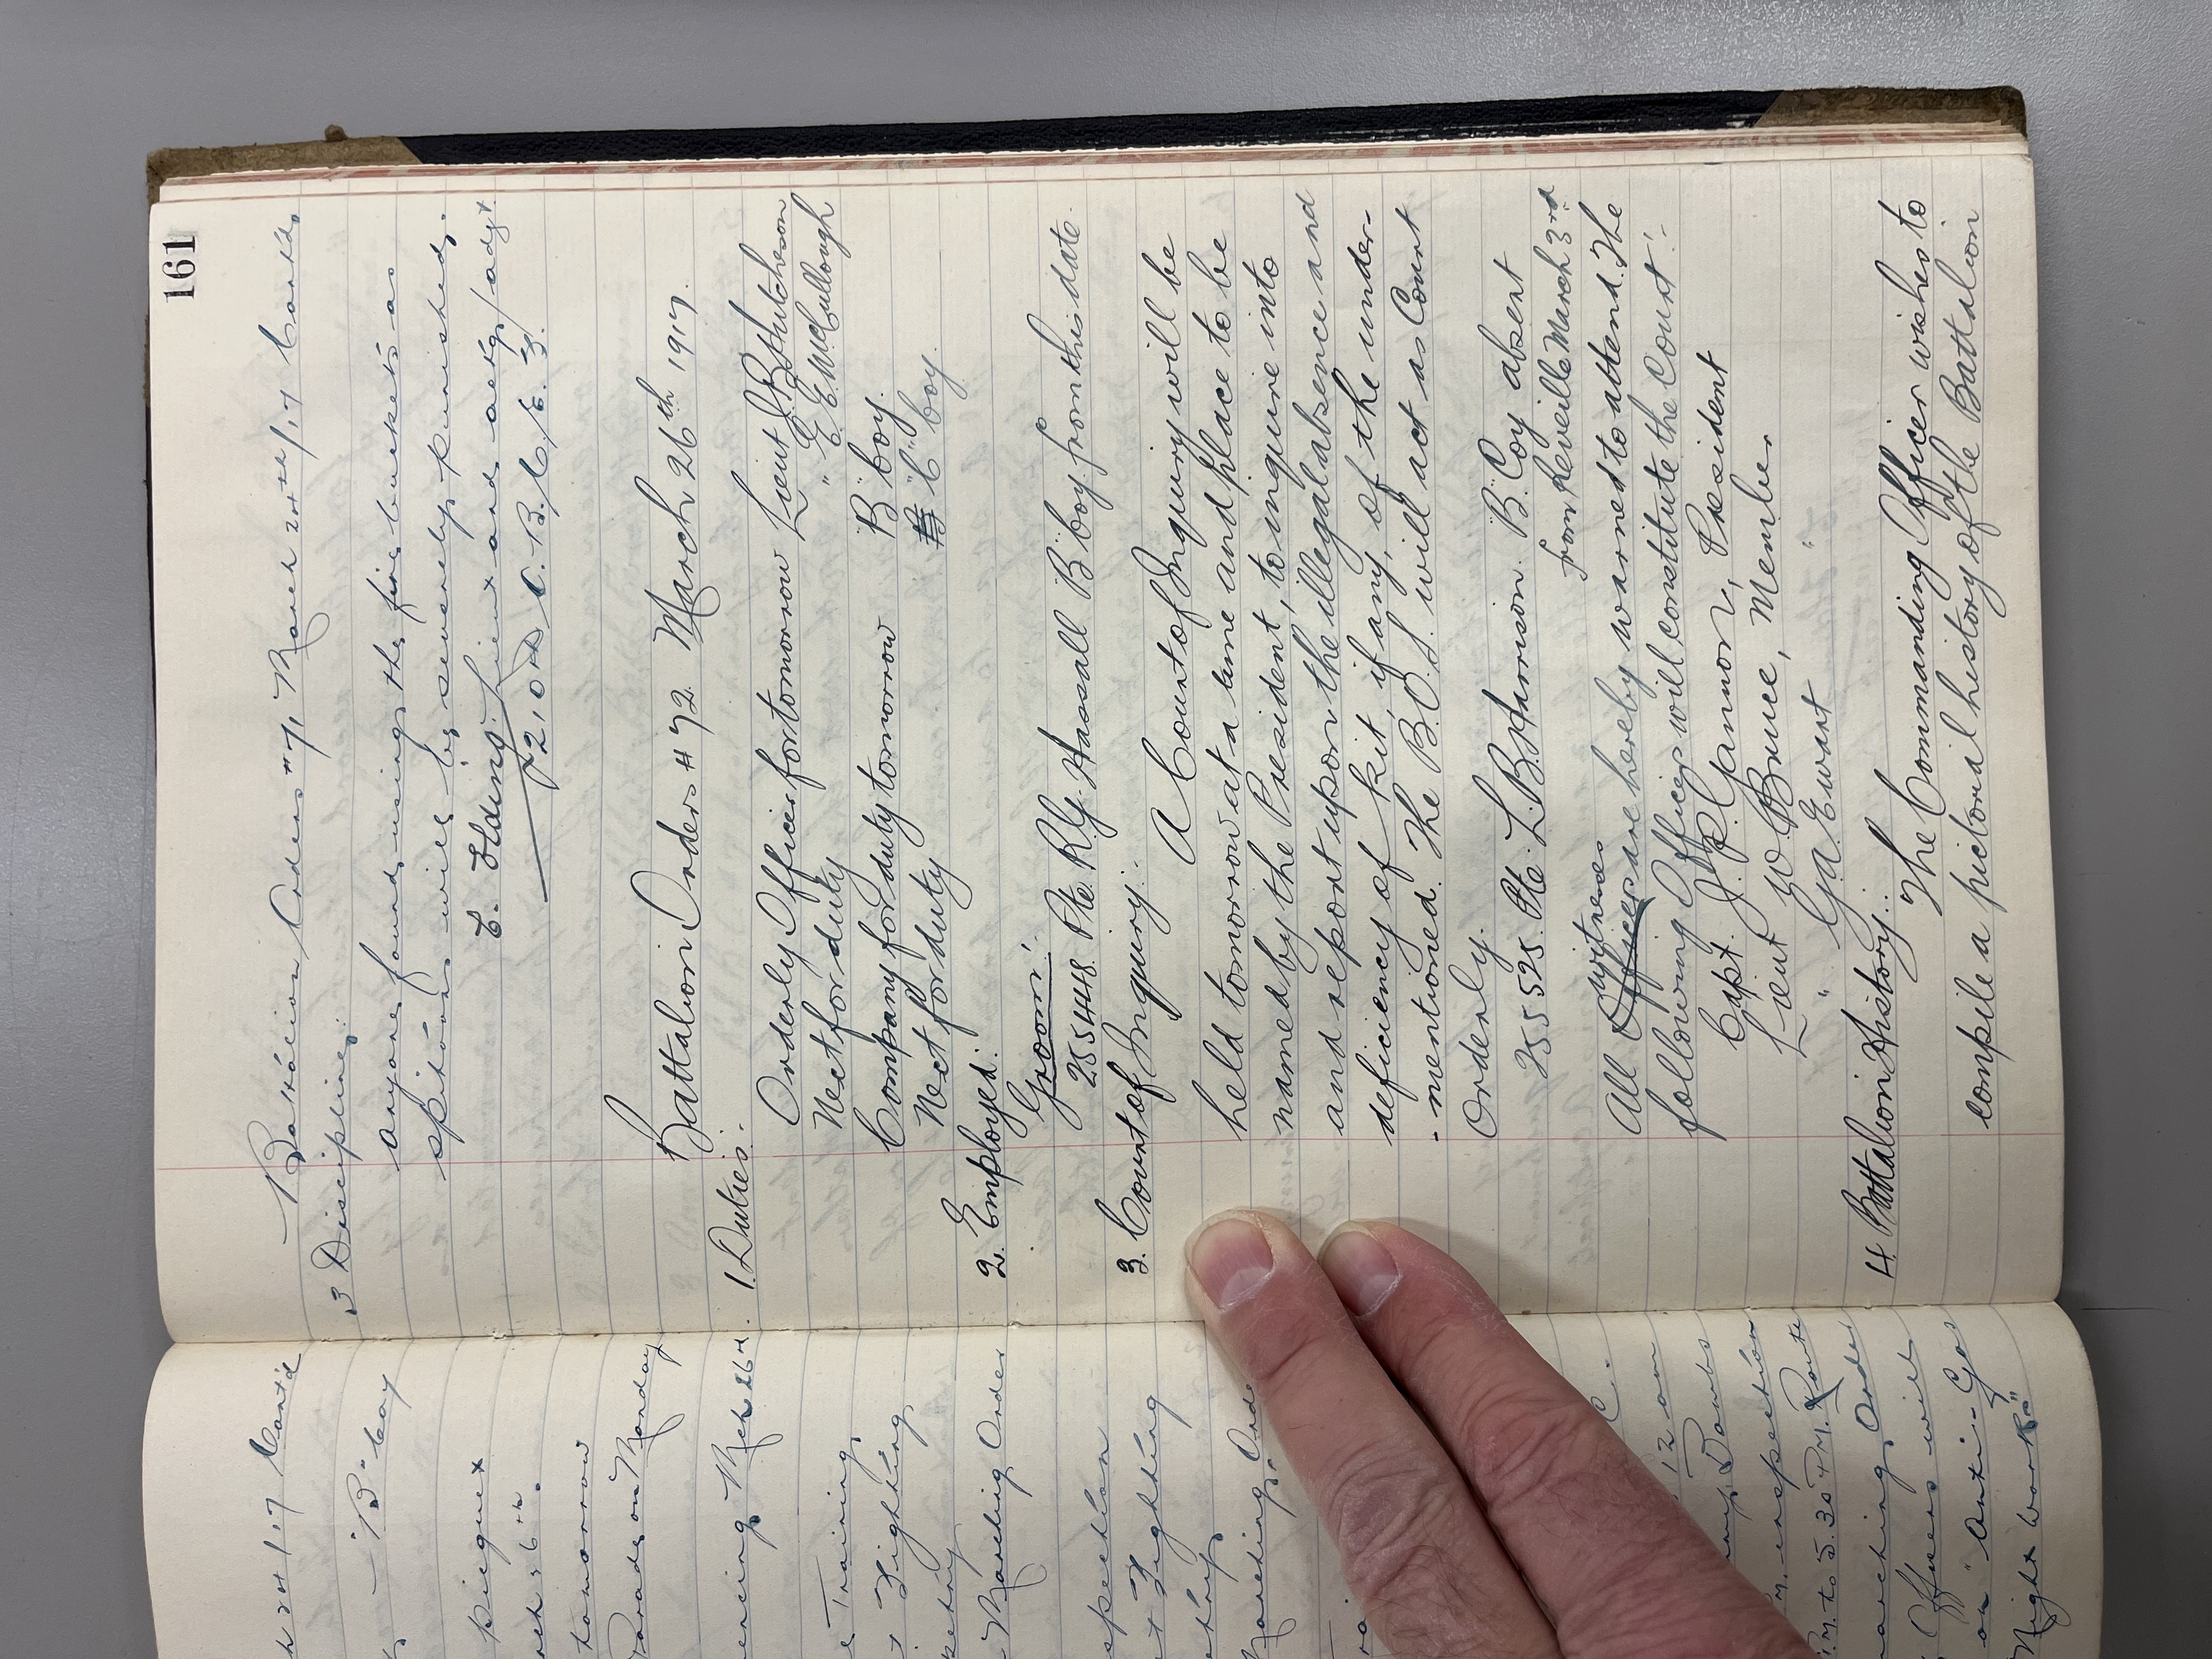 161
Battalion Orders #71 March 24th/17 Contd.
3 Discipline:
Anyone found using the fire buckets as
spitoons will be severely punished.
Lieut and actg/adjt
210th O.B. C.E.F.
Battalion Orders #72. March 26th 1917.
1. Duties:-
Orderly Officer for tomorrow Lieut J.B. Hutcheson
Next for duty " E. E. McCullough
Company for duty tomorrow "B" Coy.
Next for duty "C" Coy.
2. Employed.
Groom:-
255448. Pte. R.G. Hassall B Coy from this date.
3. Court of Inquiry:- A Court of Inquiry will be
held tomorrow at a time and place to be
named by the President, to inquire into
and report upon the illegal absence and
deficiency of kit, if any, of the under-
-mentioned. The B.O.S. will act as Court
Orderly.
255525. Pte. L.B. Harrison. "B" Coy absent
from Reveille March 23rd.
All witnesses are hereby warned to attend. The
following Officers will constitute the Court:-
Capt. J.P. Gannon, President
Lieut W. Bruce, Member
" G.A. Ewart "
4. Battalion History:-
The Commanding Officer wishes to
compile a pictorial history of the Battalion
24/17 Contd
"B" Coy
picquet
6th.
tomorrow
Parade on Monday
Mch 26th.
Training,
Fighting
Marching Order
Fighting
Marching Order
12 am
Bombs
inspection
P.M. to 5.30 P.M. Route
marching Order
Officers will
on "Anti-Gas
Night Work"